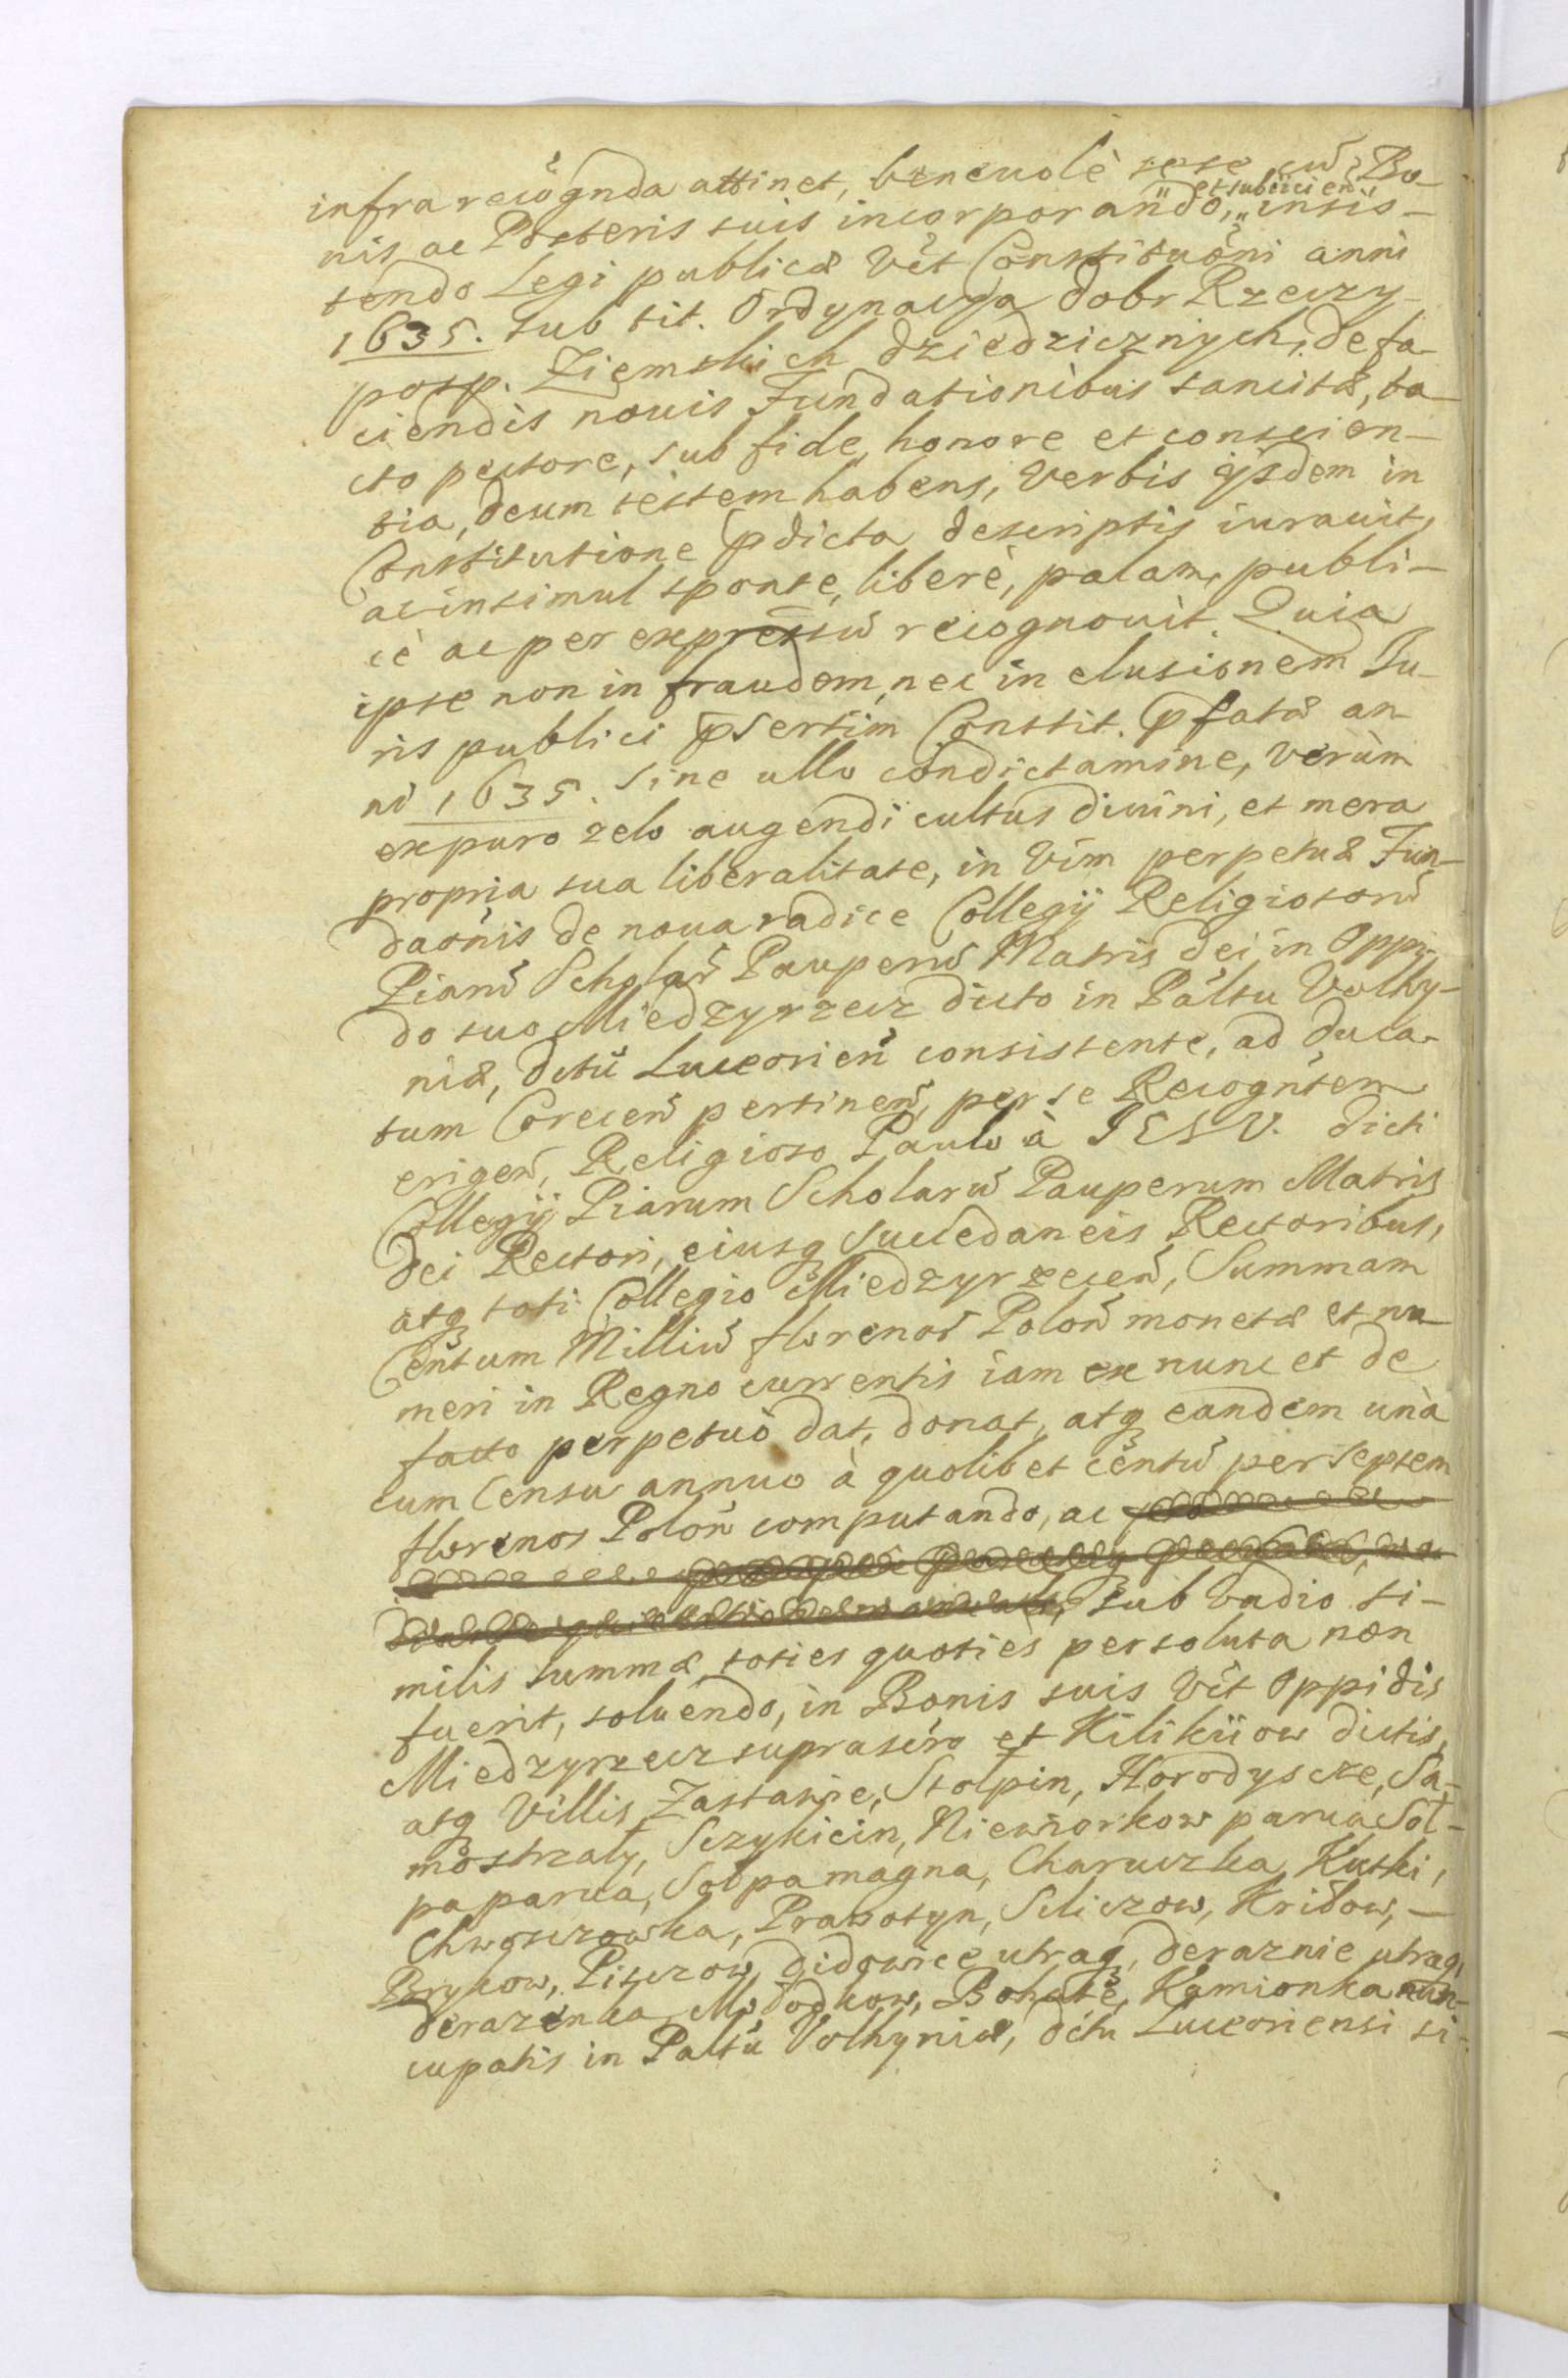 infra recögnda attinet, beneuolè sese cum Bo-
nis ac Posteris suis incorporando, et subiicien. insis-
tendo Legi publicæ Vèt Constituöni anni
1635. sub tit. Ordynacya dobr Rzeczy-
posp. Ziemskich dziedzicznych, de fa-
ciendis nouis Fundationibus sancitæ, ta-
cto pectore, sub fide, honore et conscien-
tia, deum testem habens, Verbis ÿsdem in
Constitutione pdicta descriptis iurauit,
ac insimul sponte, liberè, palam, publi-
cè ac per expressũ recognouit. Quia
ipse non in fraudem, nec in elusionem Iu-
ris publici psertim Constit. pfatæ an-
ni 1635. sine ullo condictamine, verùm
ex puro zelo augendi cultus diuini, et mera
propria sua liberalitate, in Vim perpetuæ Fun-
daönis de noua radice Collegÿ Religiosorũ
Piarũ Scholarũ Pauperũ Matris Dei in Oppi-
do suo Miedzyrzecz dicto in Palṫu Volhy-
niæ, dctũ Luceorien̄ consistente, ad duca-
tum Corecen̄ pertinen̄, per se Recogn̄tem
erigen̄, Religioso Paulo à IESV. dicti
Collegÿ Piarum Scholarũ Pauperum Matris
Dei Rectori, eiusq̨ Succedaneis Rectoribus,
atq̨ toti Collegio Miedzyrzecen̄, Summam
Centum Milliũ florenor̄ Polon̄ monetæ et nu-
meri in Regno currentis iam ex nunc et de
facto perpetuò dat, donat, atq̨ eandem unà
cum Censu annuo à quolibet centũ per septem
florenos Polon̄ computando, ac
sub vadio si-
milis summæ, toties quoties persoluta non
fuerit, soluendo, in Bonis suis Vèt Oppidis
Miedzyrzecz suprascro et Kilikiiow dictis,
atq̨ Villis, Zastawie, Stołpin, Horodyscze, Sa-
mostrzały, Sczykicin, Niewiorkow parua Soł-
pa parua, Sołpa magna, Charuczka, Kutki,
Chwoszczowka, Prawotyn, Seliczow, Kriłow, -
Brykow, Piszczow, Didowice utraq̨, deraznie utraq̨,
Derazenka, Mododkow, Bohate, Kamionka nun-
cupatis in Palṫu Volhyniæ, dctu Luceoriensi si-